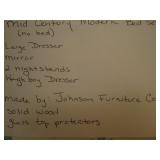 Mid Century Modern Bed Se
(no bed)
Large Dresser
mirror
2 nightstands
Highboy Dresser
Made by: Johnson Furniture Co
solid wood
glass top protectors